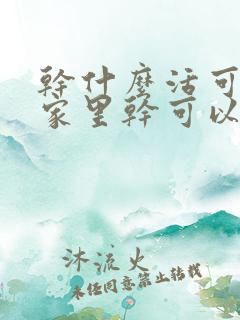 幹什麽活可
家里幹可以
沐流火
未经同意禁止转载